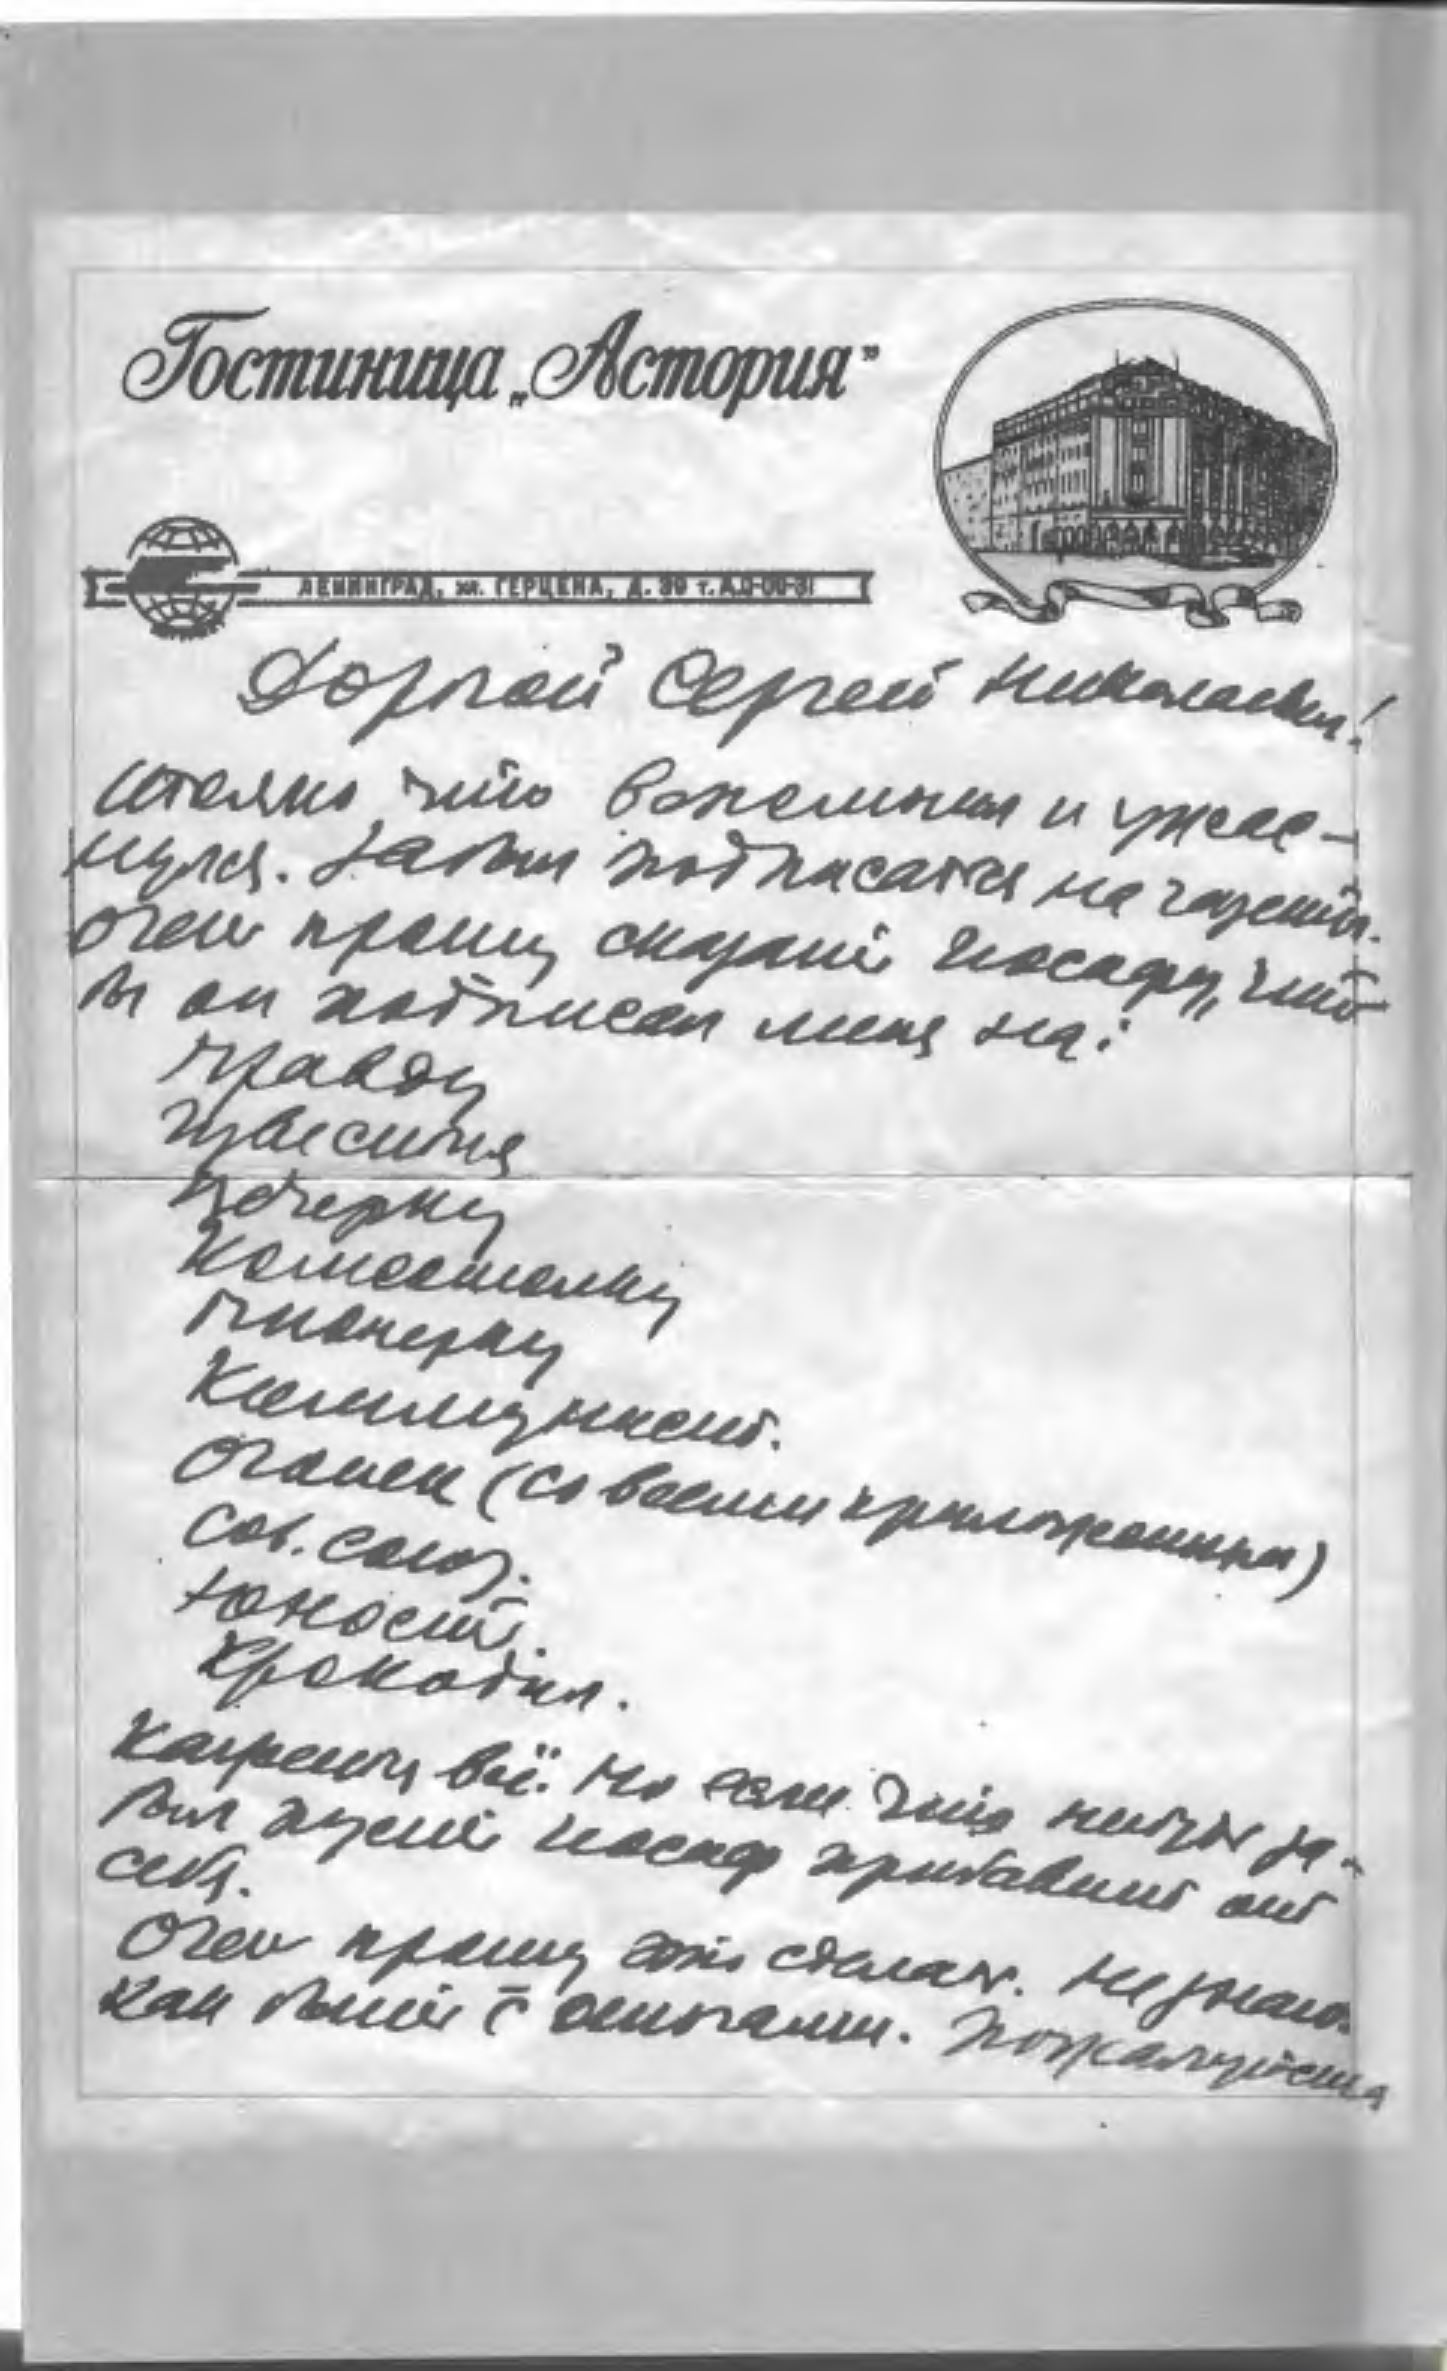 Гостиница „Астория"
ЛЕНИНГРАД, ул. ГЕРЦЕНА, Д. 39 т.
Дорогой Сергей Николаевич!
только что вспомнил и ужас-
нулся. Забыл подписаться на газеты.
Очень прошу сказать Иосафу, что
бы он подписал меня на:
Правду
Известия
Вечерку
Комсомолку
Пионерку
Коммунист.
Огонек (со всеми приложениями)
Сов. союз.
Юность.
Крокодил.
Кажется всё. Но если что нибудь за-
был пусть Иосаф прибавит от
себя.
Очень прошу это сделать. Не знаю
как быть с деньгами. Пожалуйста